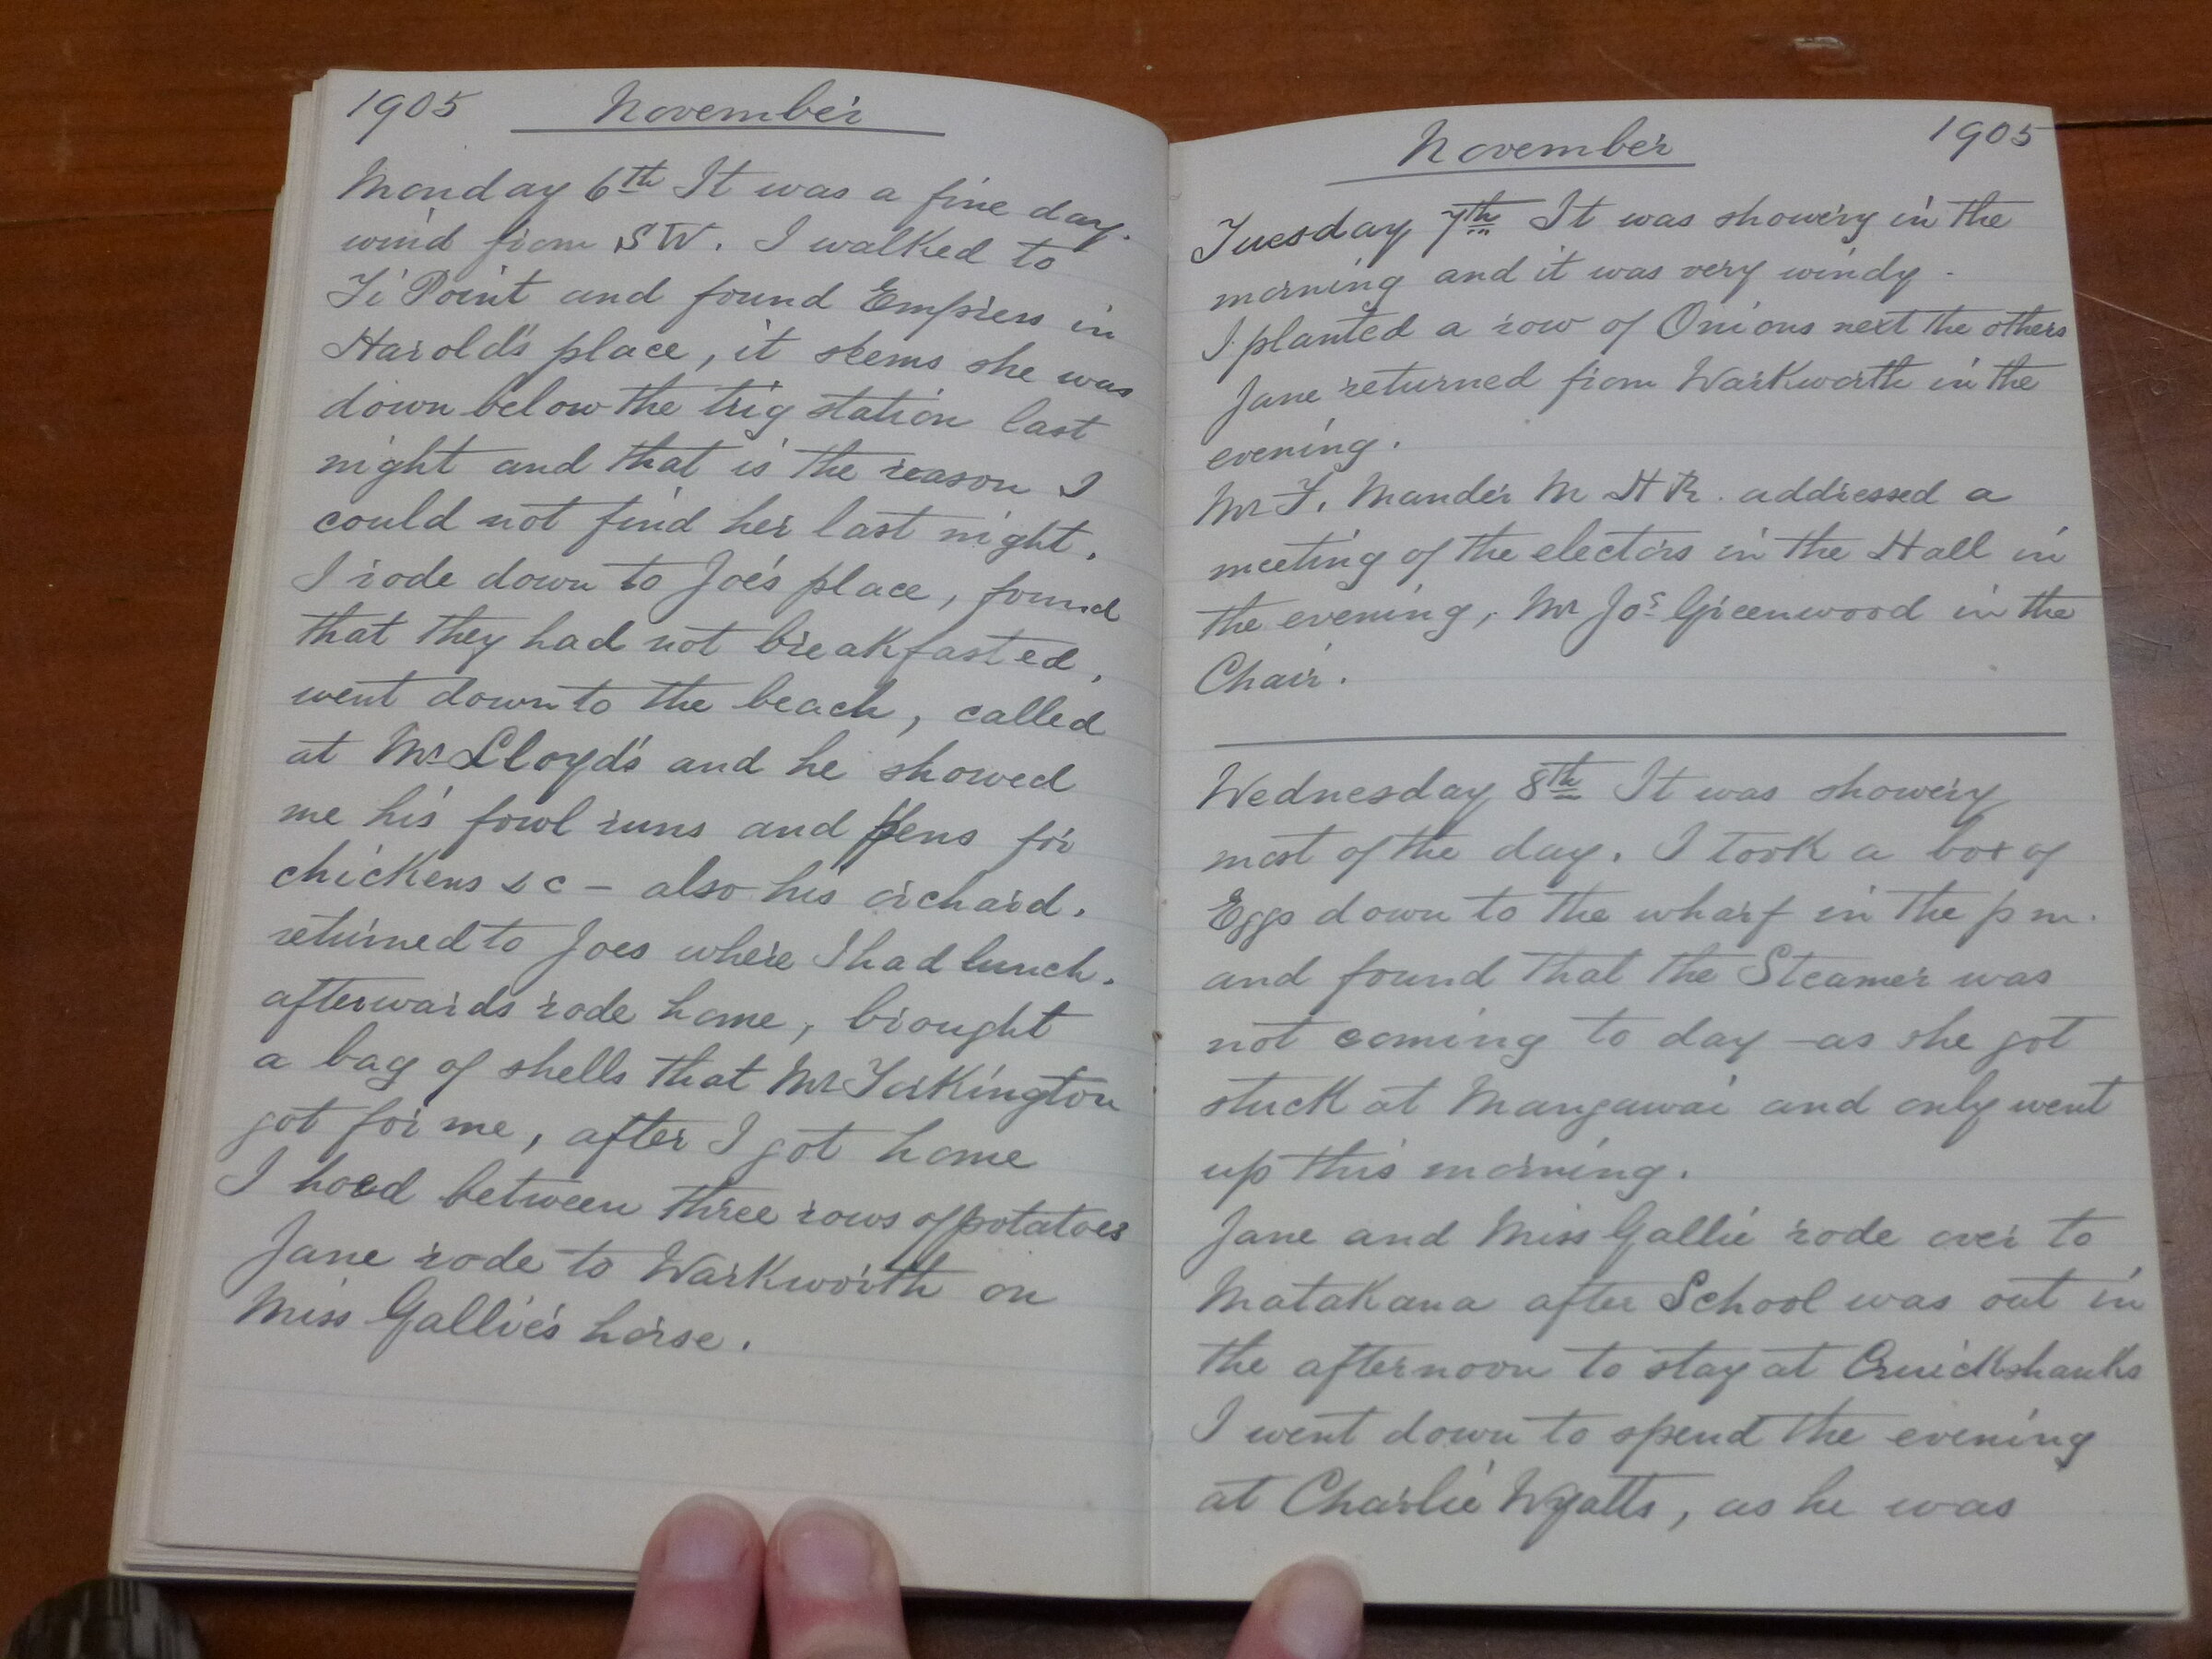 1905 November
Monday 6th It was a fine day.
wind from SW. I walked to
Ti Point and found Empress in
Harold's place, it seems she was
down below the trig station last
night and that is the reason I
could not find her last night.
I rode down to Joe's place, found
that they had not breakfasted,
went down to the beach, called
at Mr Lloyd's and he showed
me his fowl runs and pens for
chickens &c – also his orchard.
returned to Joes where I had lunch.
afterwards rode home, brought
a bag of shells that Mr Torkington
got for me, after I got home
I hoed between three rows of potatoes
Jane rode to Warkworth on
Miss Gallie's horse.
November 1905
Tuesday 7th It was showery in the
morning and it was very windy.
I planted a row of Onions next the others
Jane returned from Warkworth in the
evening.
Mr F. Mander M H R. addressed a
meeting of the electors in the Hall in
the evening, Mr Jos Greenwood in the
Chair.
Wednesday 8th It was showery
most of the day. I took a box of
Eggs down to the wharf in the p m.
and found that the Steamer was
not coming to day – as she got
stuck at Mangawai and only went
up this morning.
Jane and Miss Gallie rode over to
Matakana after School was out in
the afternoon to stay at Cruickshanks
I went down to spend the evening
at Charlie Wyatts, as he was